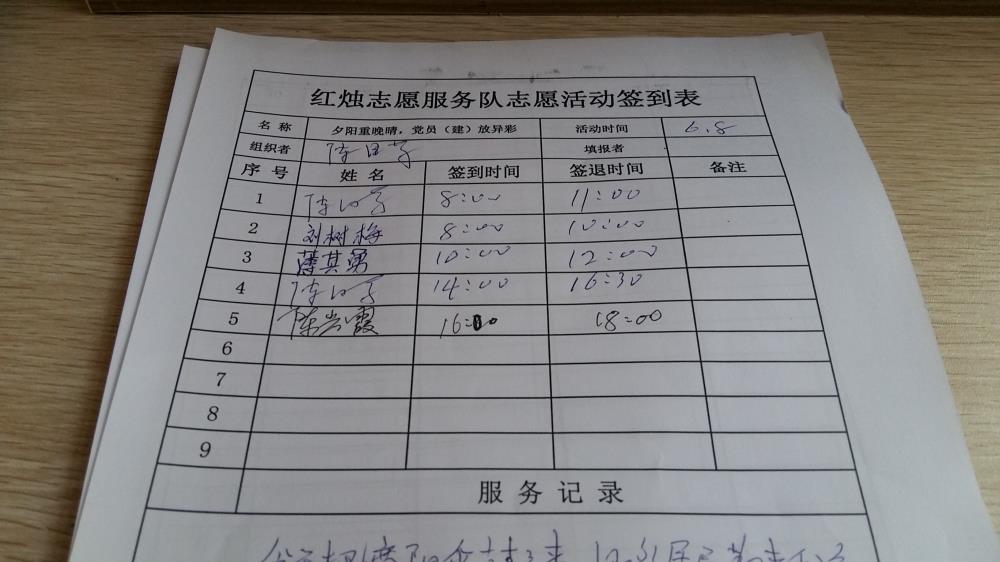 红烛志愿服务队志愿活动签到表
名 称 夕阳重晚晴，党员（建）放异彩 活动时间 6.8
组织者 填报者
序 号 姓 名 签到时间 签退时间 备注
1 8:00 11:00
2 刘树梅 8:00 10:00
3 薄其勇 10:00 12:00
4 14:00 16:30
5 陈岩霞 16:00 18:00
6
7
8
9
服 务 记 录